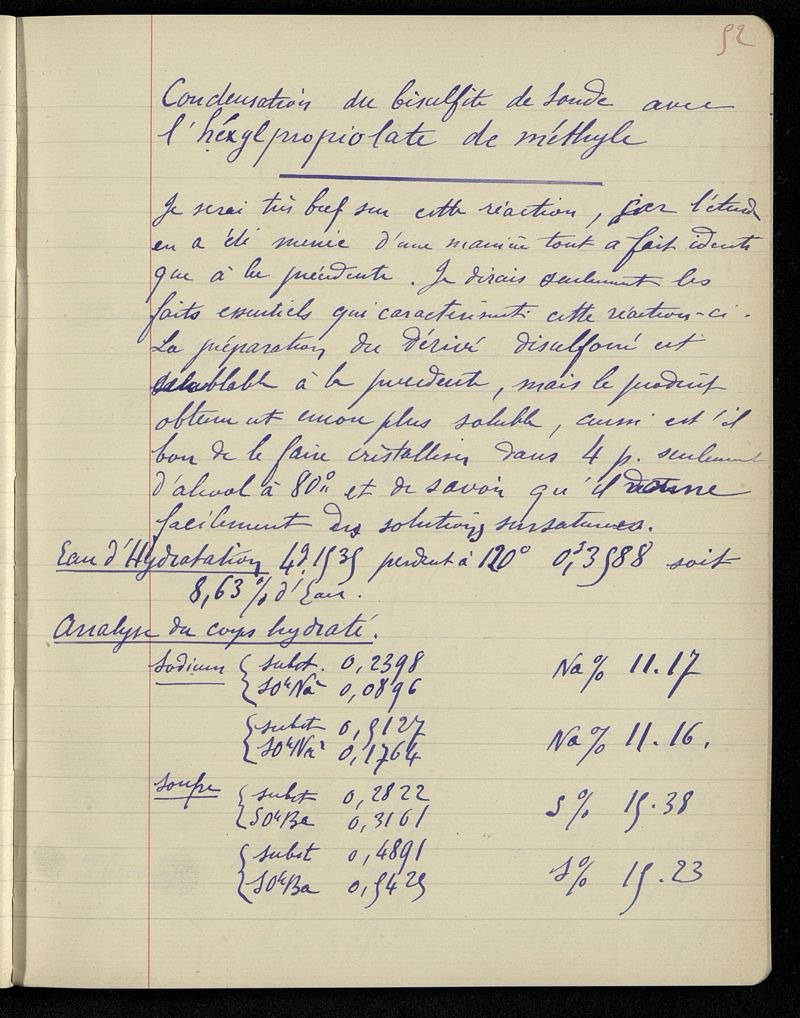 52
Condensation du bisulfite de soude avec
l'héxylpropiolate de méthyle
Je serai très bref sur cette réaction, car l'étude
en a été menée d'une manière tout a fait identi
que à la précédente. Je dirais seulement les
faits essentiels qui caractérisent cette réaction-ci.
La préparation du dérivé disulfoné est
semblable à la précédente, mais le produit
obtenu est encore plus soluble, aussi est-il
bon de le faire cristalliser dans 4 p. seulement
d'alcool à 80° et de savoir qu'il donne
facilement des solutions sursaturées.
Eau d'Hydratation 4g,1535 perdent à 120° 0g,3588 soit
8,63% d'Eau.
Analyse du corps hydraté.
Sodium { subst. 0,2398 Na% 11.17
{ SO4Na2 0,0896
{ subst 0,5127 Na% 11.16.
{ SO4Na2 0,1764
Soufre { subst 0,2822 S% 15.38
{ SO4Ba 0,3161
{ subst 0,4891 S% 15.23
{ SO4Ba 0,5425